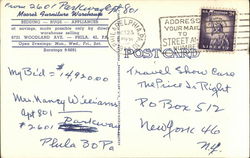 From 2601 Parkway apt 801
Moore's Furniture Warehouse
BEDDING — RUGS — APPLIANCES
at savings, made possible only by direct
warehouse selling
5715 WOODLAND AVE. — PHILA. 43, PA.
Open Evenings: Mon., Wed., Fri., Sat.
Saratoga
My Bid = $14,920.00
Mrs Nancy Williams
apt 801
2601 Parkway
Phila 30 Pa
PHILADELPHIA, PA.
ADDRESS
YOUR MAIL
TO
STREET AND
POST CARD
Travel Show Case
The Price Is Right
PO Box 512
New York 46
N.Y.